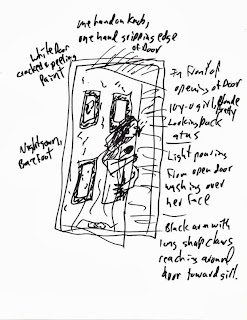 one hand on Knob,
one hand gripping edge
of Door
White Door
cracked & peeling
Paint
Nightgown,
Barefoot
In front of
opening of Door
girl, Blonde
Pretty
Looking back
at us
Light pouring
From open door
washing over
her Face
Black arm with
long sharp claws
reaching around
door toward girl.